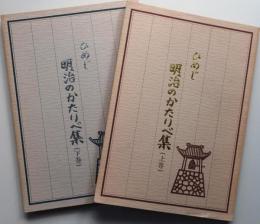 ひめじ
明治のかたりべ集
(下巻)
ひめじ
明治のかたりべ集
(上巻)